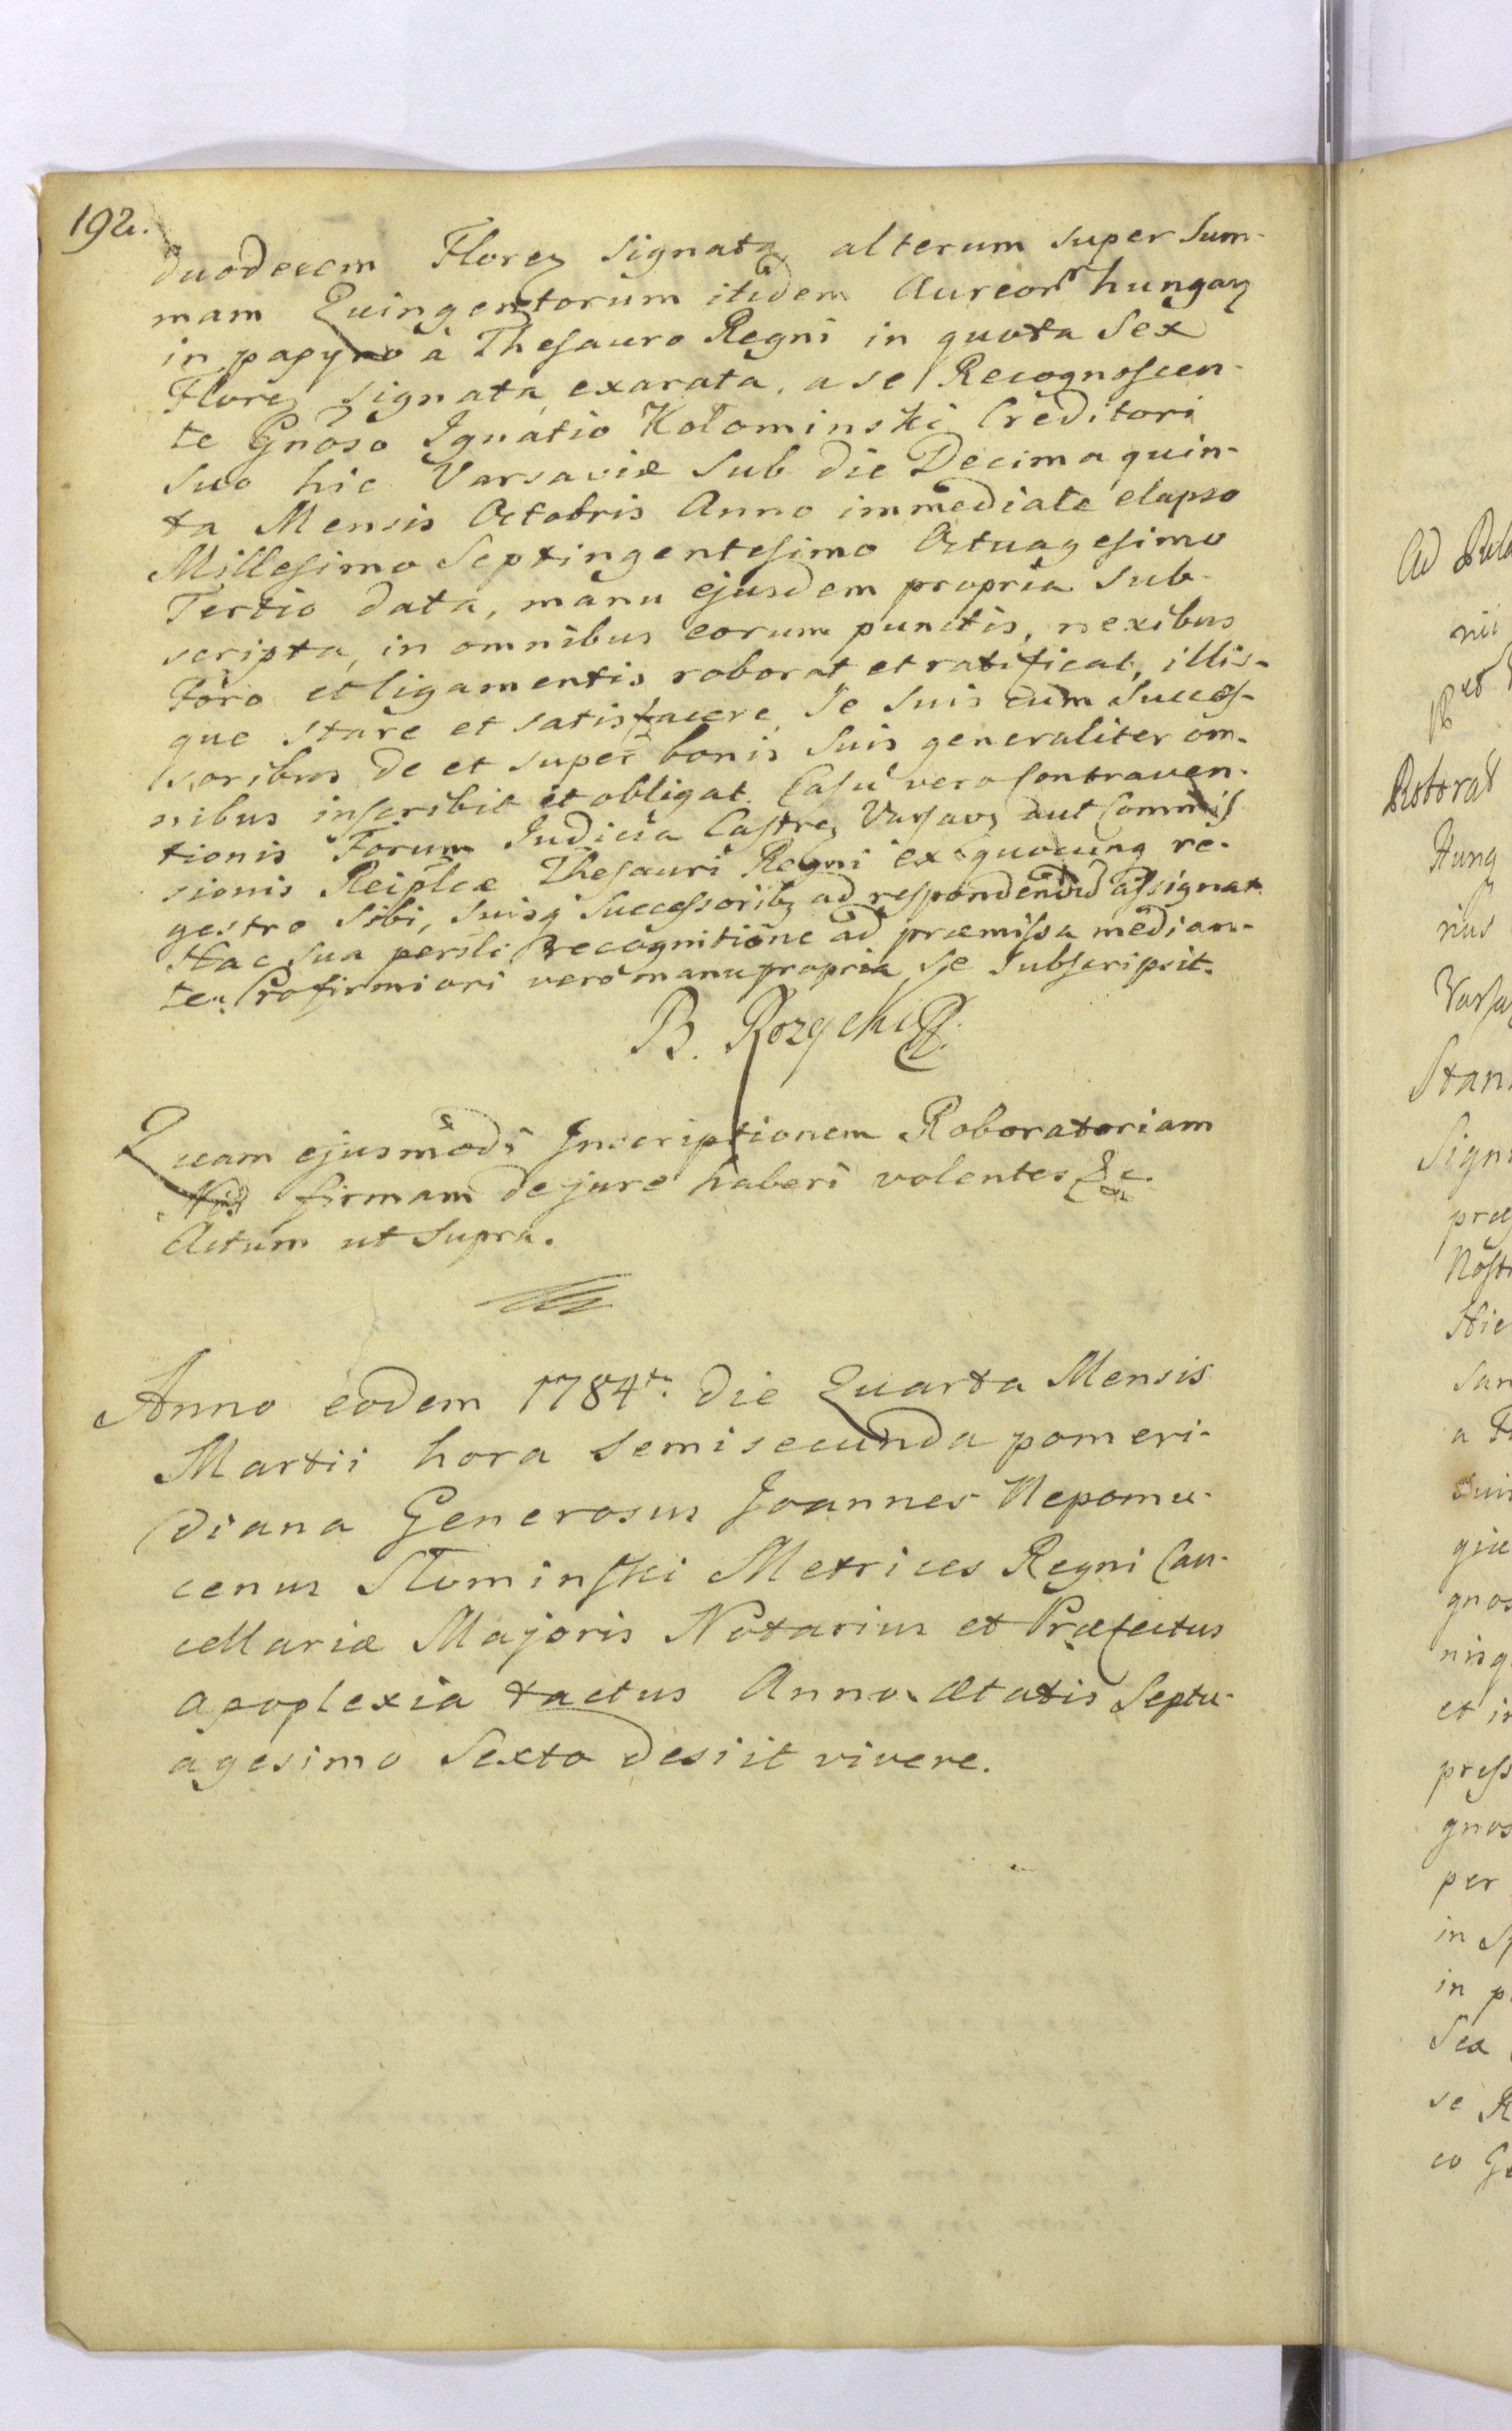 192.
duodecem Florez signata, alterum super Sum-
mam Quingentorum itidem Aureor hungarz
in papyro a Thesauro Regni in quota Sex
Florez signata, exarata, a se Recognoscen-
te Gnoso Ignatio Kołominski Creditori
suo hic Varsaviæ sub die Decima quin-
ta Mensis Octobris Anno immediate elapso
Millesimo Septingentesimo Octuagesimo
Tertio data, manu ejusdem propria sub-
scripta, in omnibus eorum punctis, nexibus
Foro et ligamentis roborat et ratificat, illis-
que stare et satisfacere, se suis cum Succes-
soribus de et super bonis suis generaliter om-
nibus inscribit et obligat. Casu vero Contraven-
tionis Forum Judicia Castrez Varsavz aut Commis
sionis Reiplcæ Thesauri Regni ex quocunq re-
gestro sibi, suisq Successoribz ad respondendũ assignat.
Hac sua persli recognitione ad præmissa median-
te. Pro firmiori vero manu propria se subscripsit.
B. Rozycki
Quam ejusmodi Inscriptionem Roboratoriam
firmam de jure haberi volentes &c.
Actum ut Supra.
Anno eodem 1784to. die Quarta Mensis
Martii hora semisecunda pomeri-
diana Generosus Joannes Nepomu-
cenus Słominski Metrices Regni Can-
cellariæ Majoris Notarius et Præfectus
apoplexia tactus Anno ætatis Septu-
agesimo Sexto desiit vivere.
Ad
nii
Roborat
Hung
rius
Varsa
Stan
Sign
præ
Nostr
Hic
San
a
suis
giu
gnos
nisq
et in
press
gnos
per
in
in p
Sex
se R
co